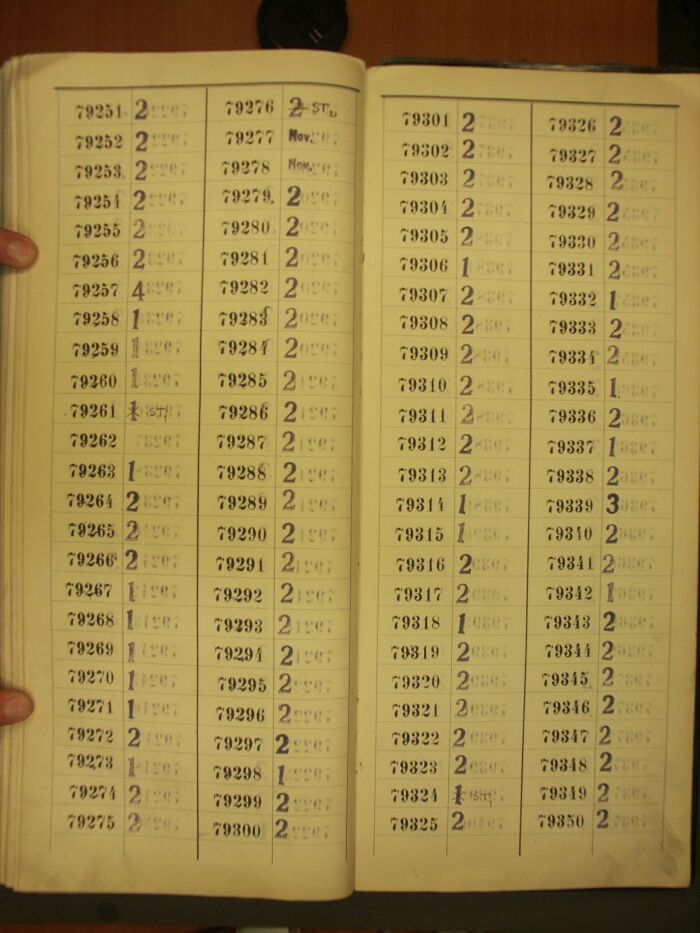 79251 2
79252 2
79253 2
79254 2
79255 2
79256 2
79257 4
79258 1
79259 1
79260 1
79261 1 (ST)
79262
79263 1
79264 2
79265 2
79266 2
79267 1
79268 1
79269 1
79270 1
79271 1
79272 2
79273 1
79274 2
79275 2
79276 2 ST
79277 Nov.
79278 Nov.
79279 2
79280 2
79281 2
79282 2
79283 2
79284 2
79285 2
79286 2
79287 2
79288 2
79289 2
79290 2
79291 2
79292 2
79293 2
79294 2
79295 2
79296 2
79297 2
79298 1
79299 2
79300 2
79301 2
79302 2
79303 2
79304 2
79305 2
79306 1
79307 2
79308 2
79309 2
79310 2
79311 2
79312 2
79313 2
79314 1
79315 1
79316 2
79317 2
79318 1
79319 2
79320 2
79321 2
79322 2
79323 2
79324 1 (ST)
79325 2
79326 2
79327 2
79328 2
79329 2
79330 2
79331 2
79332 1
79333 2
79334 2
79335 1
79336 2
79337 1
79338 2
79339 3
79340 2
79341 2
79342 1
79343 2
79344 2
79345 2
79346 2
79347 2
79348 2
79349 2
79350 2